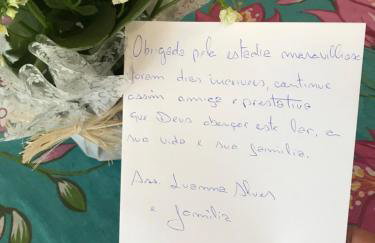 Obrigada pela estadia maravilhosa
foram dias incríveis, continue
assim amiga e prestativa
que Deus abençoe este lar, a
sua vida e sua família.
Ass. Luanna Alves
e família